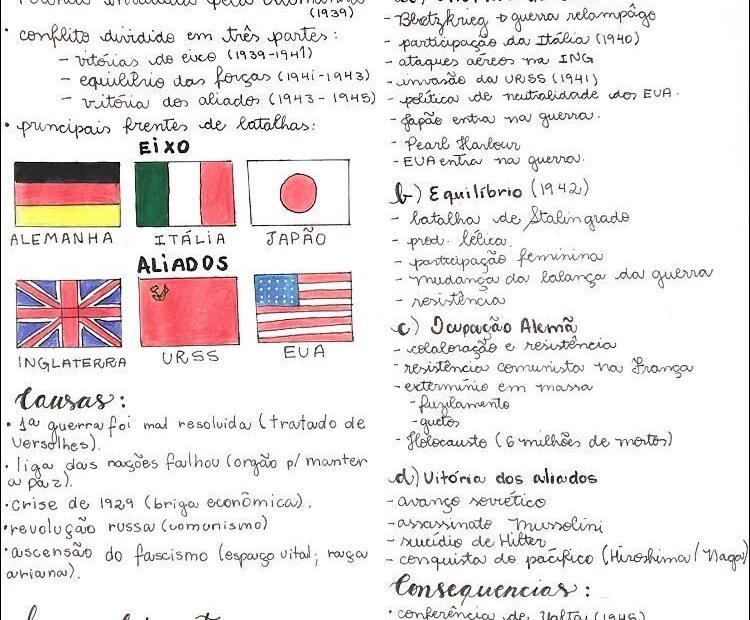 (1939)
• conflito dividido em três partes:
- vitórias do eixo (1939-1941)
- equilíbrio das forças (1941-1943)
- vitória dos aliados (1943-1945)
• principais frentes de batalhas:
EiXO
ALEMANHA ITÁLIA JAPÃO
ALiADOS
INGLATERRA URSS EUA
Causas:
• 1a guerra foi mal resolvida (tratado de
Versalhes).
• liga das nações falhou (orgão p/ manter
a paz).
• crise de 1929 (briga econômica).
• revolução russa (comunismo)
• ascensão do fascismo (espaço vital; raça
ariana).
- Bletzkrieg → guerra relampâgo
- participação da Itália (1940)
- ataques aéreos na ING
- invasão da URSS (1941)
- política de neutralidade dos EUA.
- Japão entra na guerra.
- Pearl Harbour
- EUA entra na guerra.
b) Equilíbrio (1942)
- batalha de Stalingrado
- prod. bélica.
- participação feminina
- mudança da balança da guerra
- resistência
c) Ocupação Alemã
- colaboração e resistência
- resistência comunista na França
- extermínio em massa
- fuzilamento
- guetos
- Holocausto (6 milhões de mortos)
d) Vitória dos aliados
- avanço soviético
- assassinato Mussolini
- suicídio de Hitler
- conquista do pacífico (Hiroshima/Naga)
Consequencias:
• conferência de Yalta (1945)